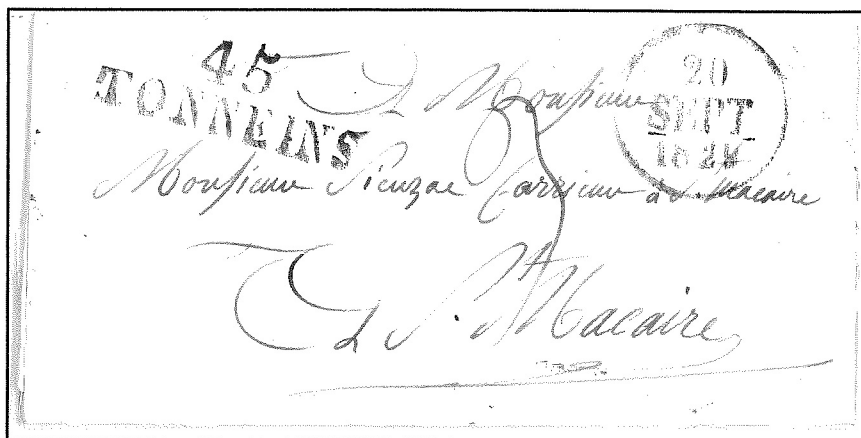 45
TONNEINS
20
SEPT
A Monsieur
Monsieur Sieuzac Carrieur à S. Macaire
A St Macaire